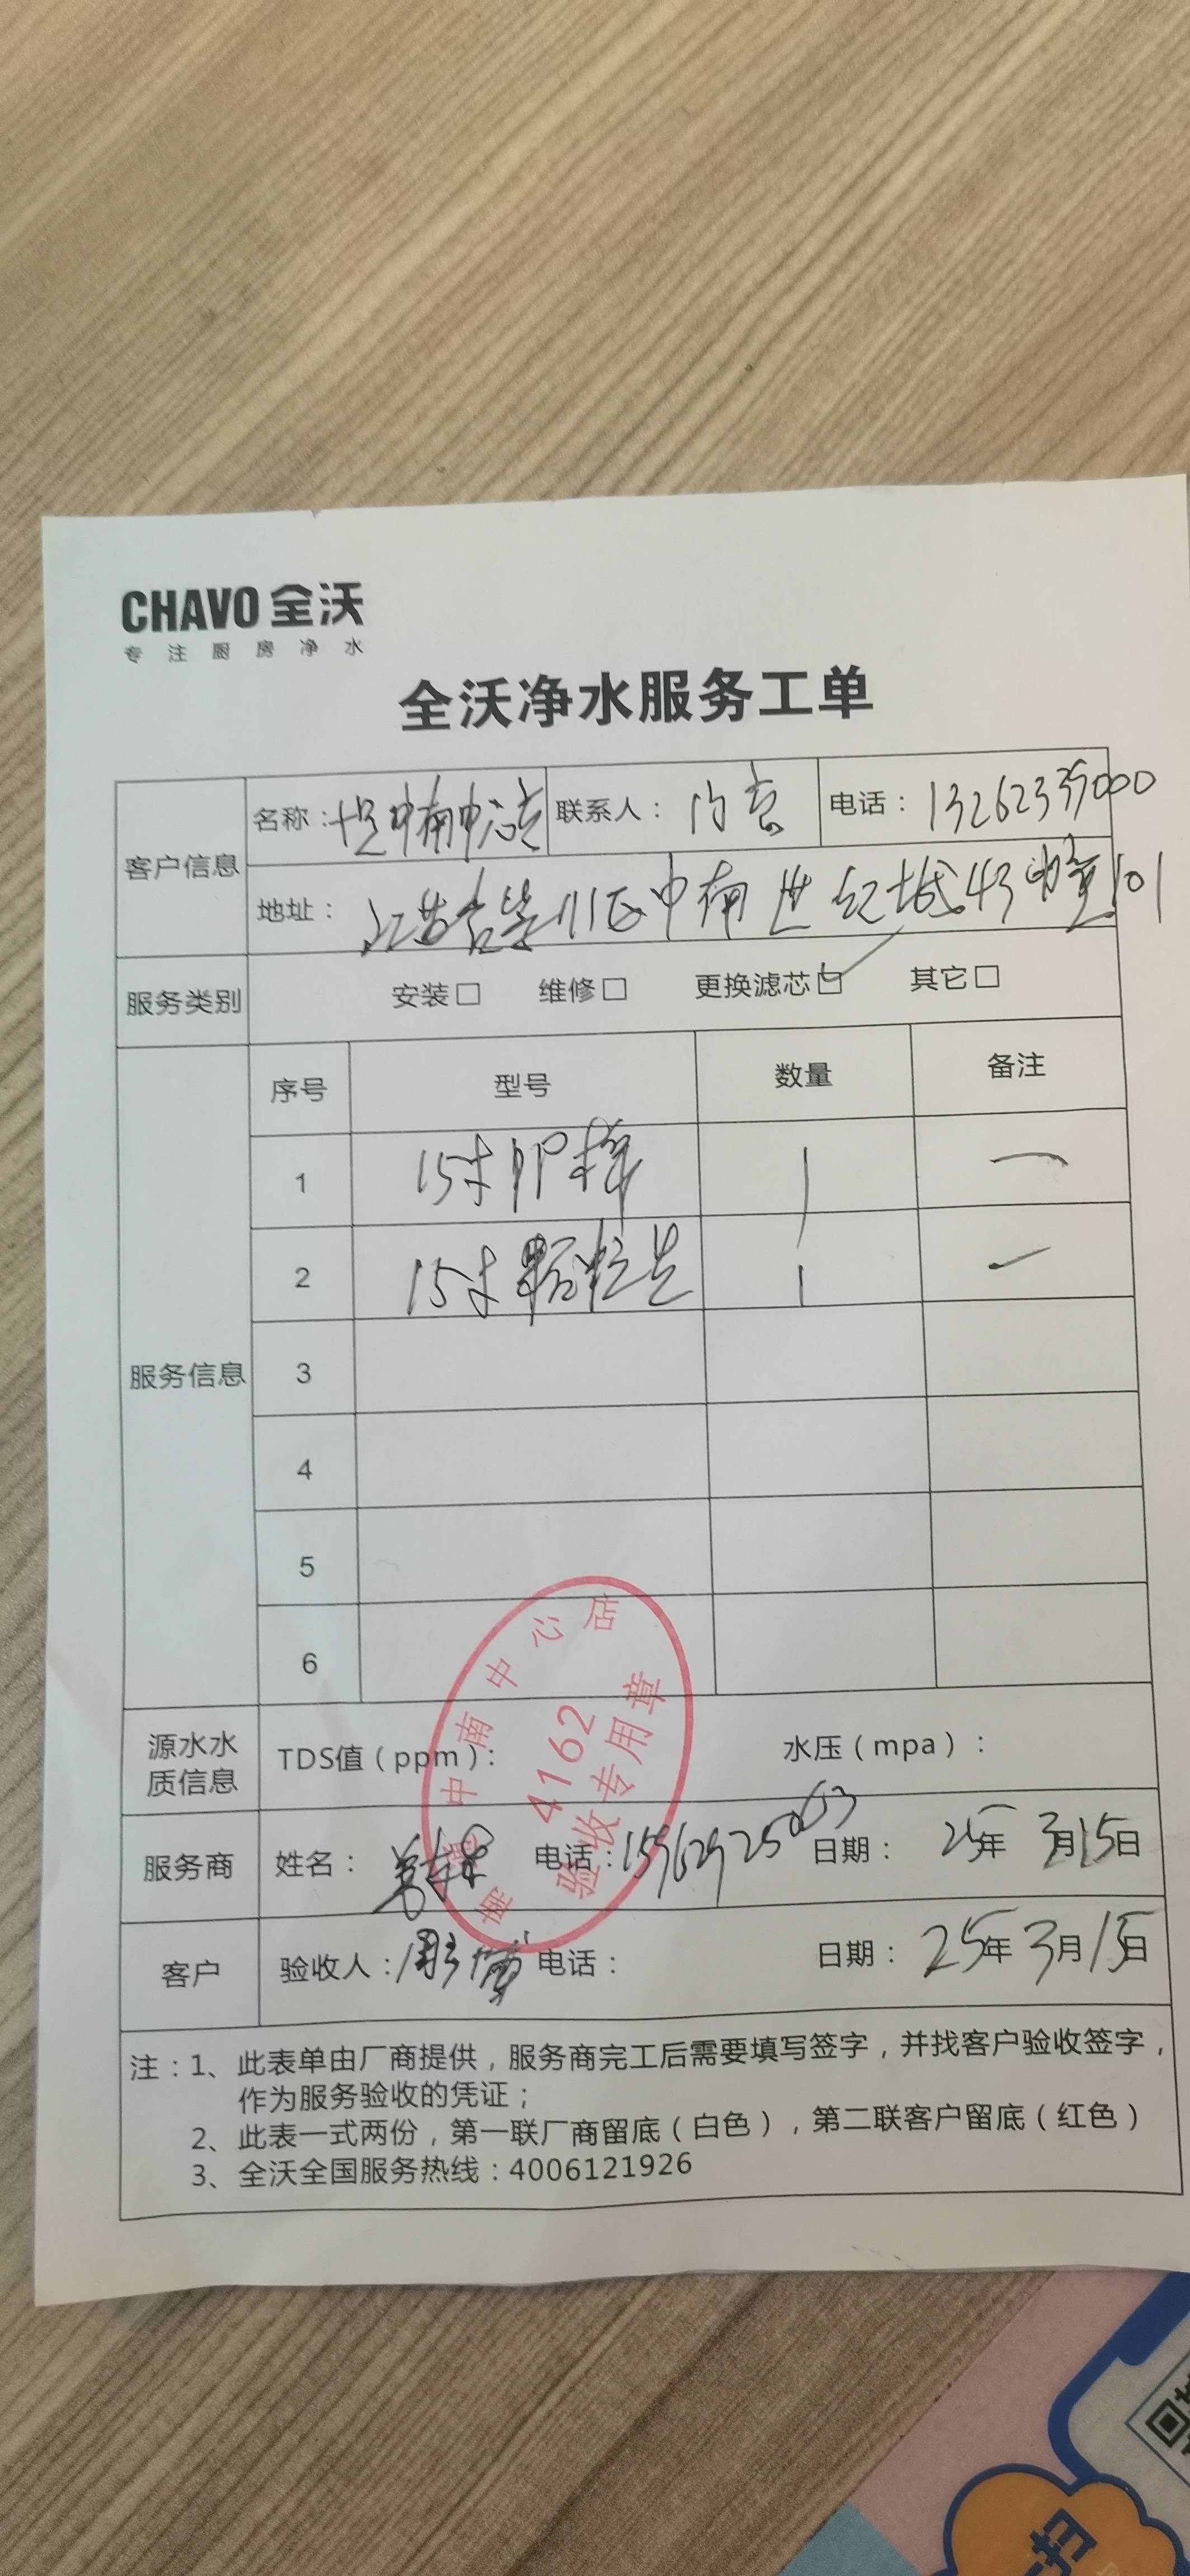 CHAVO 全沃
专注厨房净水
全沃净水服务工单
客户信息
名称：中南中心店 联系人： 电话：
地址： 中南世纪城43幢101
服务类别 安装□ 维修□ 更换滤芯☑ 其它□
服务信息
序号 型号 数量 备注
1 15寸PP棉 1 一
2 15寸颗粒炭 1 一
3
4
5
6
源水水质信息 TDS值（ppm）： 水压（mpa）：
中南中心店
4162
验收专用章
服务商 姓名： 电话： 日期：25年3月15日
客户 验收人： 电话： 日期：25年3月15日
注：1、此表单由厂商提供，服务商完工后需要填写签字，并找客户验收签字，
作为服务验收的凭证；
2、此表一式两份，第一联厂商留底（白色），第二联客户留底（红色）
3、全沃全国服务热线：4006121926
扫